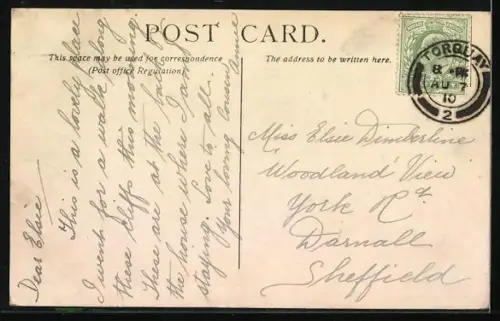 POST CARD.
This space may be used for correspondence
(Post office Regulation)
The address to be written here.
Dear Elsie
This is a lovely place
I went for a walk along
these cliffs this morning.
These are at the back of
the house where I am
staying. Love to all.
Your loving cousin
Annie
TORQUAY
8 PM
AU 7
10
2
Miss Elsie Dimberline
"Woodland View"
York Rd
Darnall
Sheffield